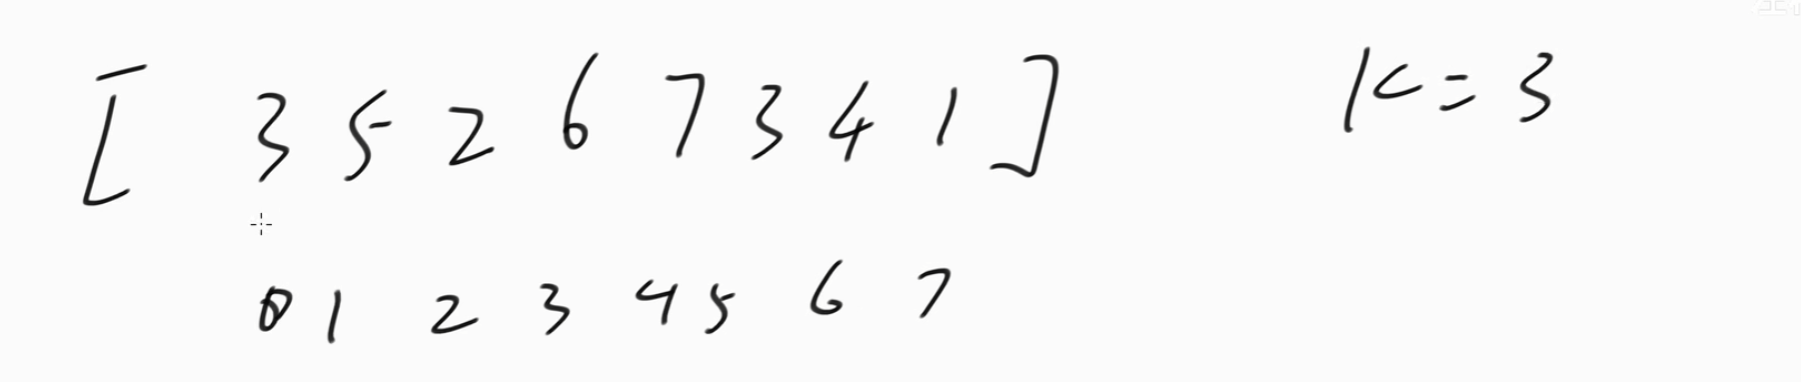 [ 3 5 2 6 7 3 4 1 ] K = 3
0 1 2 3 4 5 6 7